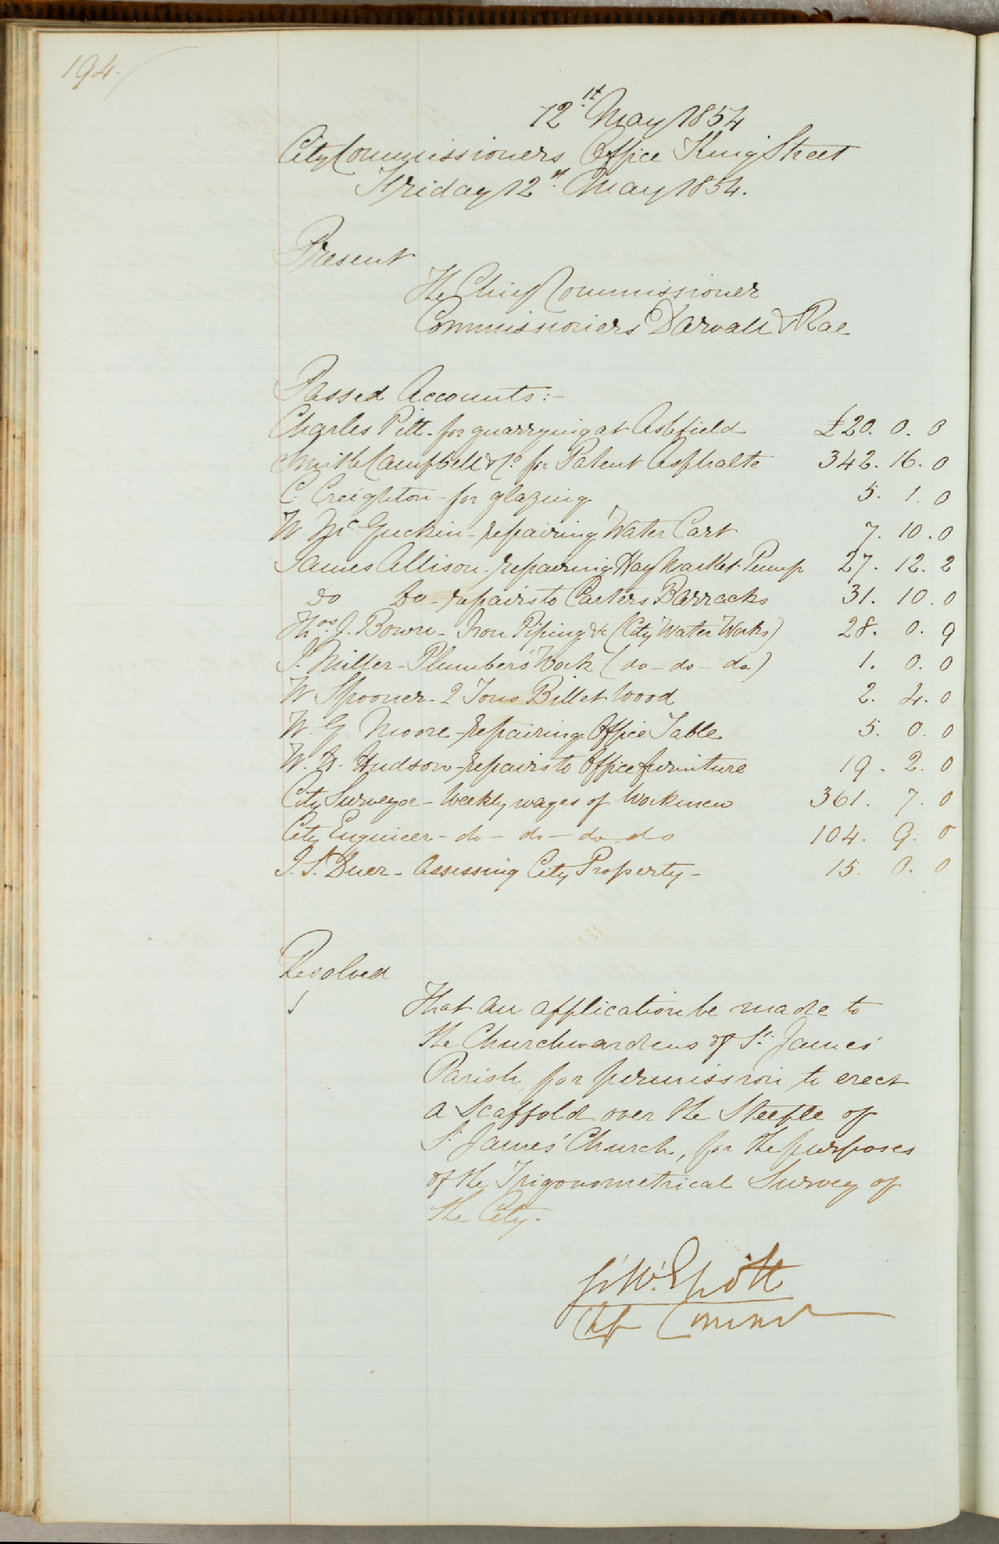 194.
12th May 1854
City Commissioners Office King Street
Friday 12th May 1854.
Present
The Chief Commissioner
Commissioners Darvall & Rae
Passed Accounts:-
Charles Pitt - for quarrying at Ashfield £20. 0. 0
Smith Campbell & Co. for Patent Asphalte 342. 16. 0
C. Creighton - for glazing 5. 1. 0
W Mc.Guckin - repairing Water Cart 7. 10. 0
James Allison - repairing Hay Market Pump 27. 12. 2
do do - repairs to Carters Barracks 31. 10. 0
Thos. J. Bown - Iron Piping &c (City Water Works) 28. 0. 9
J. Miller - Plumbers Work (do - do - do) 1. 0. 0
W Spooner - 2 Tons Billet Wood 2. 4. 0
W. G. Moore - repairing Office Table 5. 0. 0
W. H. Hudson - repairs to Office furniture 19. 2. 0
City Surveyor - Weekly wages of Workmen 361. 7. 0
City Engineer - do - do - do do 104. 9. 0
J. S. Duer - Assessing City Property - 15. 0. 0
Resolved
1 That an application be made to
the Churchwardens of St. James'
Parish, for permission to erect
a scaffold over the Steeple of
St James' Church, for the purposes
of the Trigonometrical Survey of
the City.
G. W. Elliott
Chf Commr